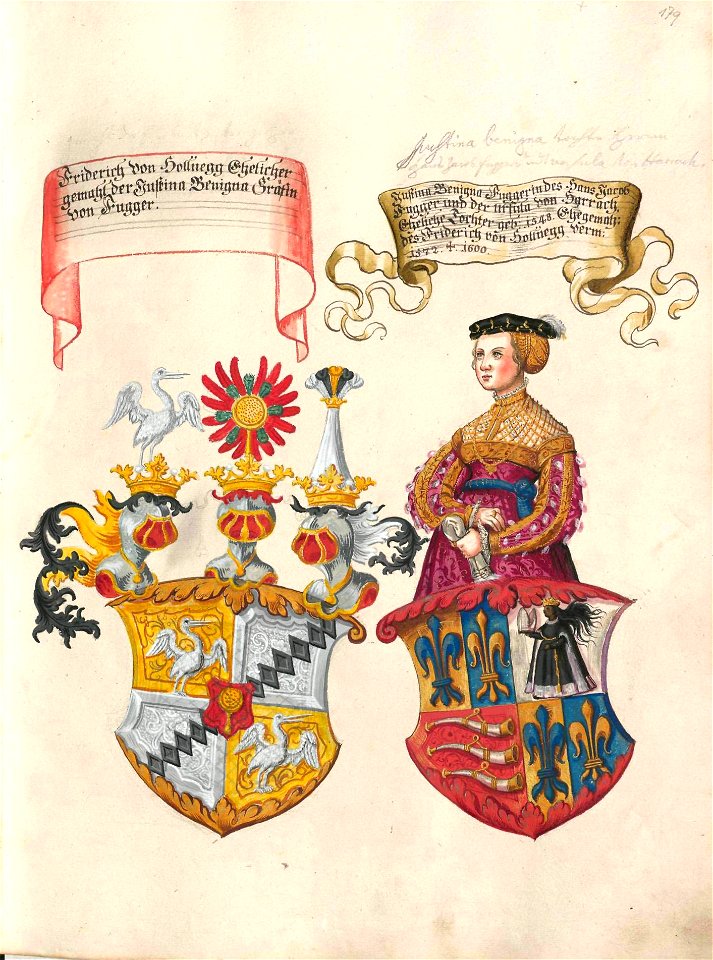 179
Friderich von Hollnegg Ehelicher
gemahl der Justina Benigna Gräfin
von Fugger.
Justina benigna
Justina Benigna Fuggerin des Hans Jacob
Fugger und der Ursula von Harrach
Eheliche Tochter geb: 1548. Ehegemah:
des Friderich von Hollnegg verm:
1572. † 1600.